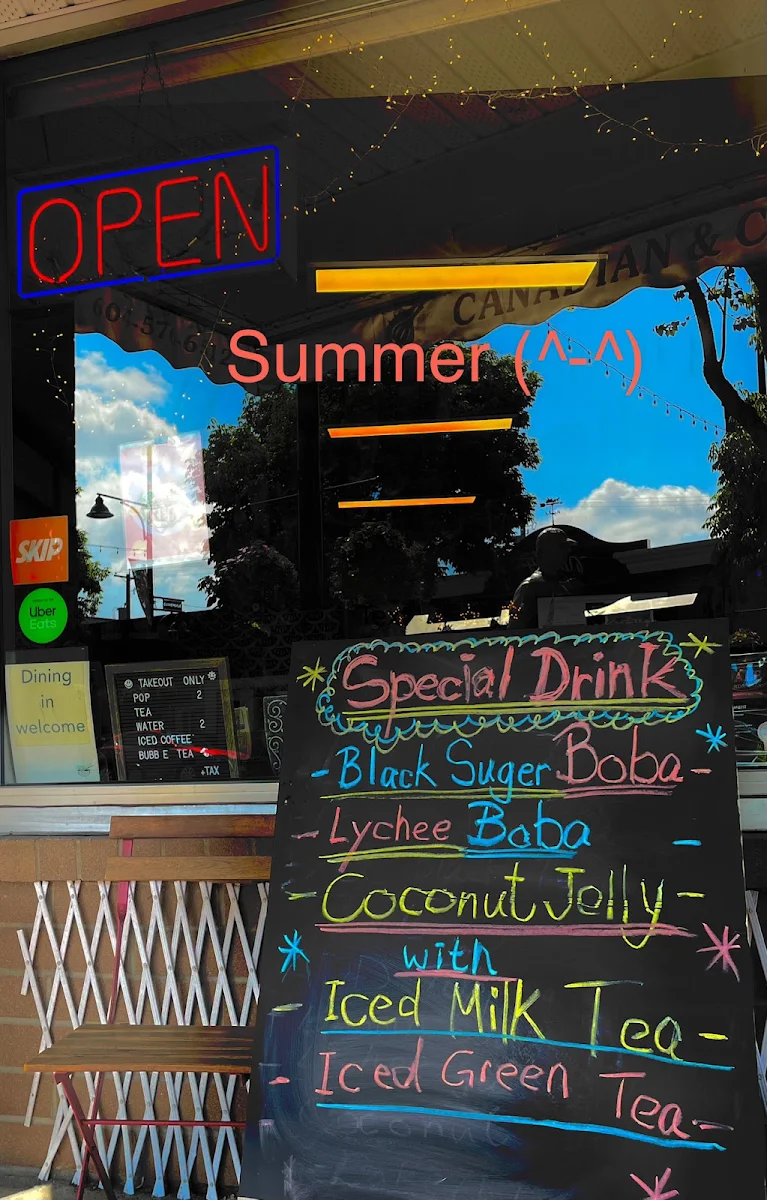 OPEN
CANADIAN & C
Summer (^-^)
SKIP
Uber
Eats
Dining
in
welcome
TAKEOUT ONLY
POP 2
TEA
WATER 2
ICED COFFEE
BUBB E TEA
+TAX
Special Drink
-Black Suger Boba-
-Lychee Boba -
-Coconut Jelly-
with
-Iced Milk Tea-
-Iced Green Tea-